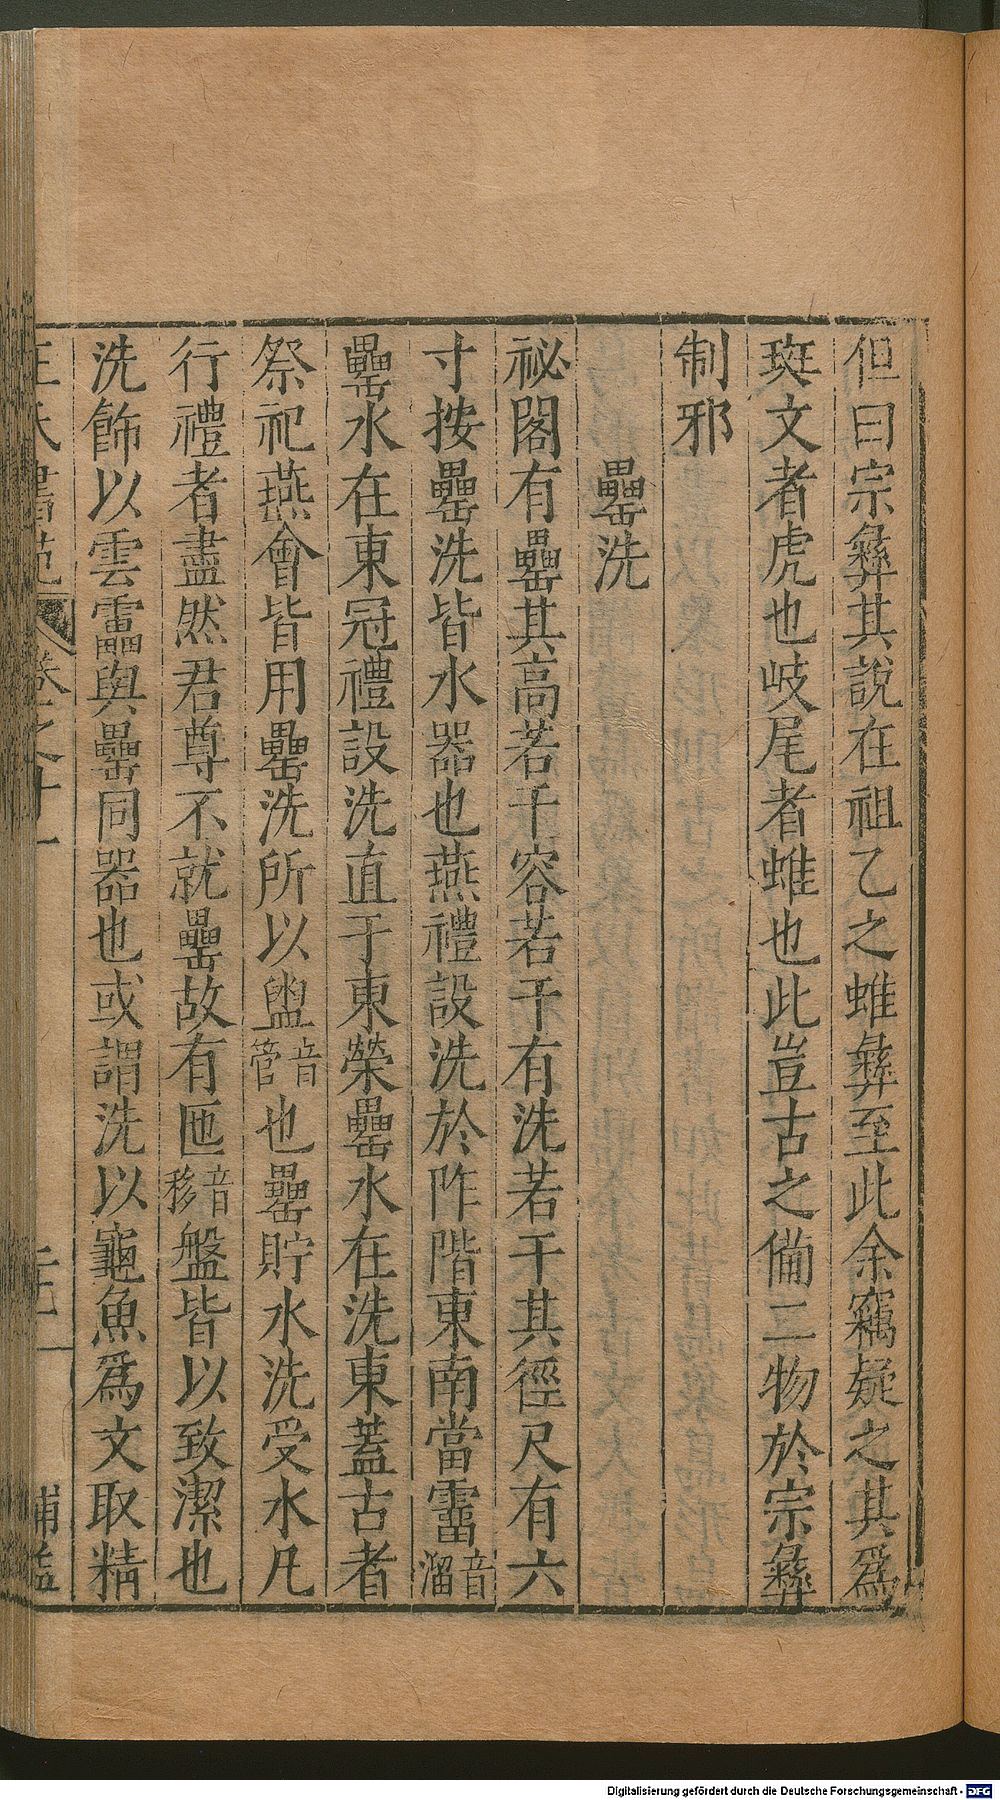 但曰宗彝其說在祖乙之蜼彝至此余竊疑之其爲
斑文者虎也岐尾者蜼也此豈古之備二物於宗彝
制邪
罍洗
祕閣有罍其高若干容若干有洗若干其徑尺有六
寸按罍洗皆水器也燕禮設洗於阼階東南當霤音溜
罍水在東冠禮設洗直于東榮罍水在洗東蓋古者
祭祀燕會皆用罍洗所以盥音管也罍貯水洗受水凡
行禮者盡然君尊不就罍故有匜音移盤皆以致潔也
洗飾以雲靁與罍同器也或謂洗以龜魚爲文取精
卷之十一
補益
Digitalisierung gefördert durch die Deutsche Forschungsgemeinschaft - DFG